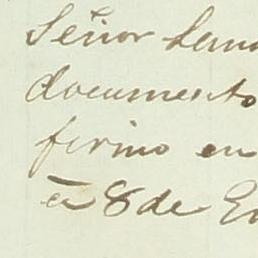 Señor
documento
firmo en
a 8 de